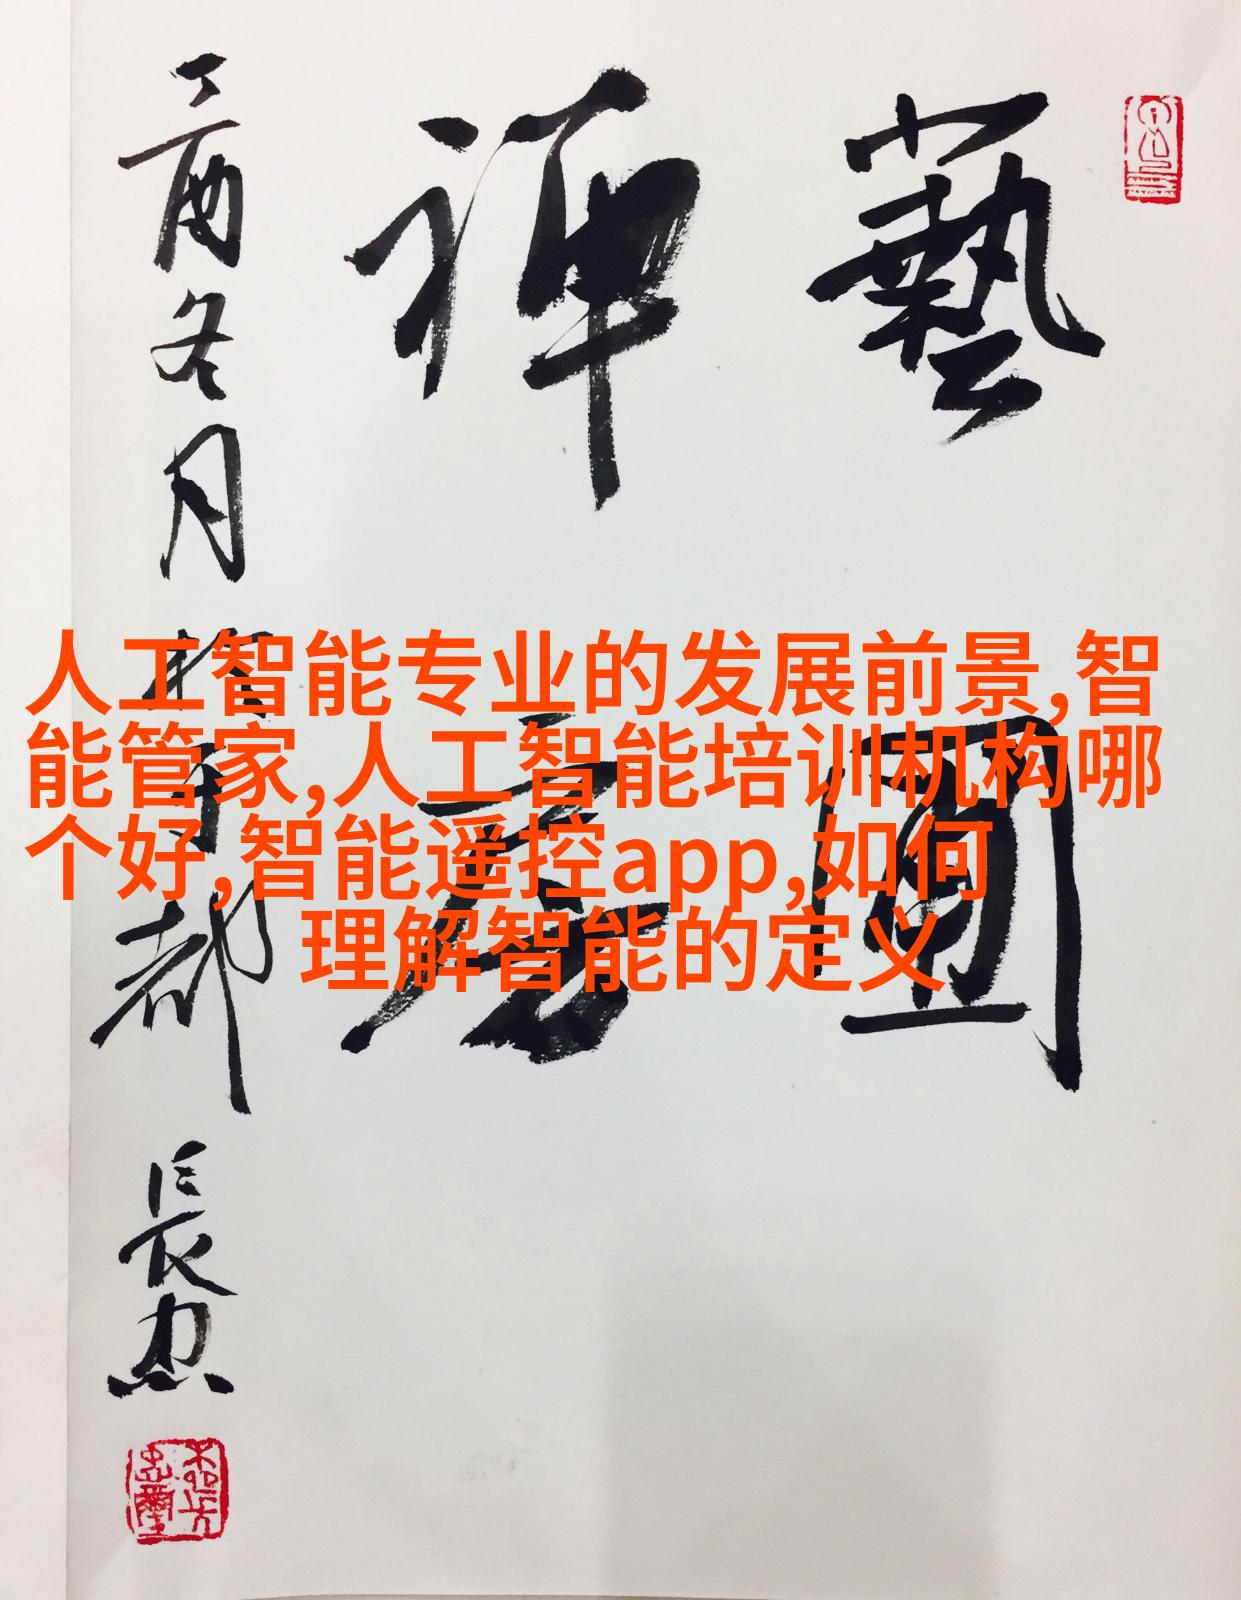 藝圃
禅房
丁酉冬月
都
長忠
人工智能专业的发展前景,智
能管家,人工智能培训机构哪
个好,智能遥控app,如何
理解智能的定义